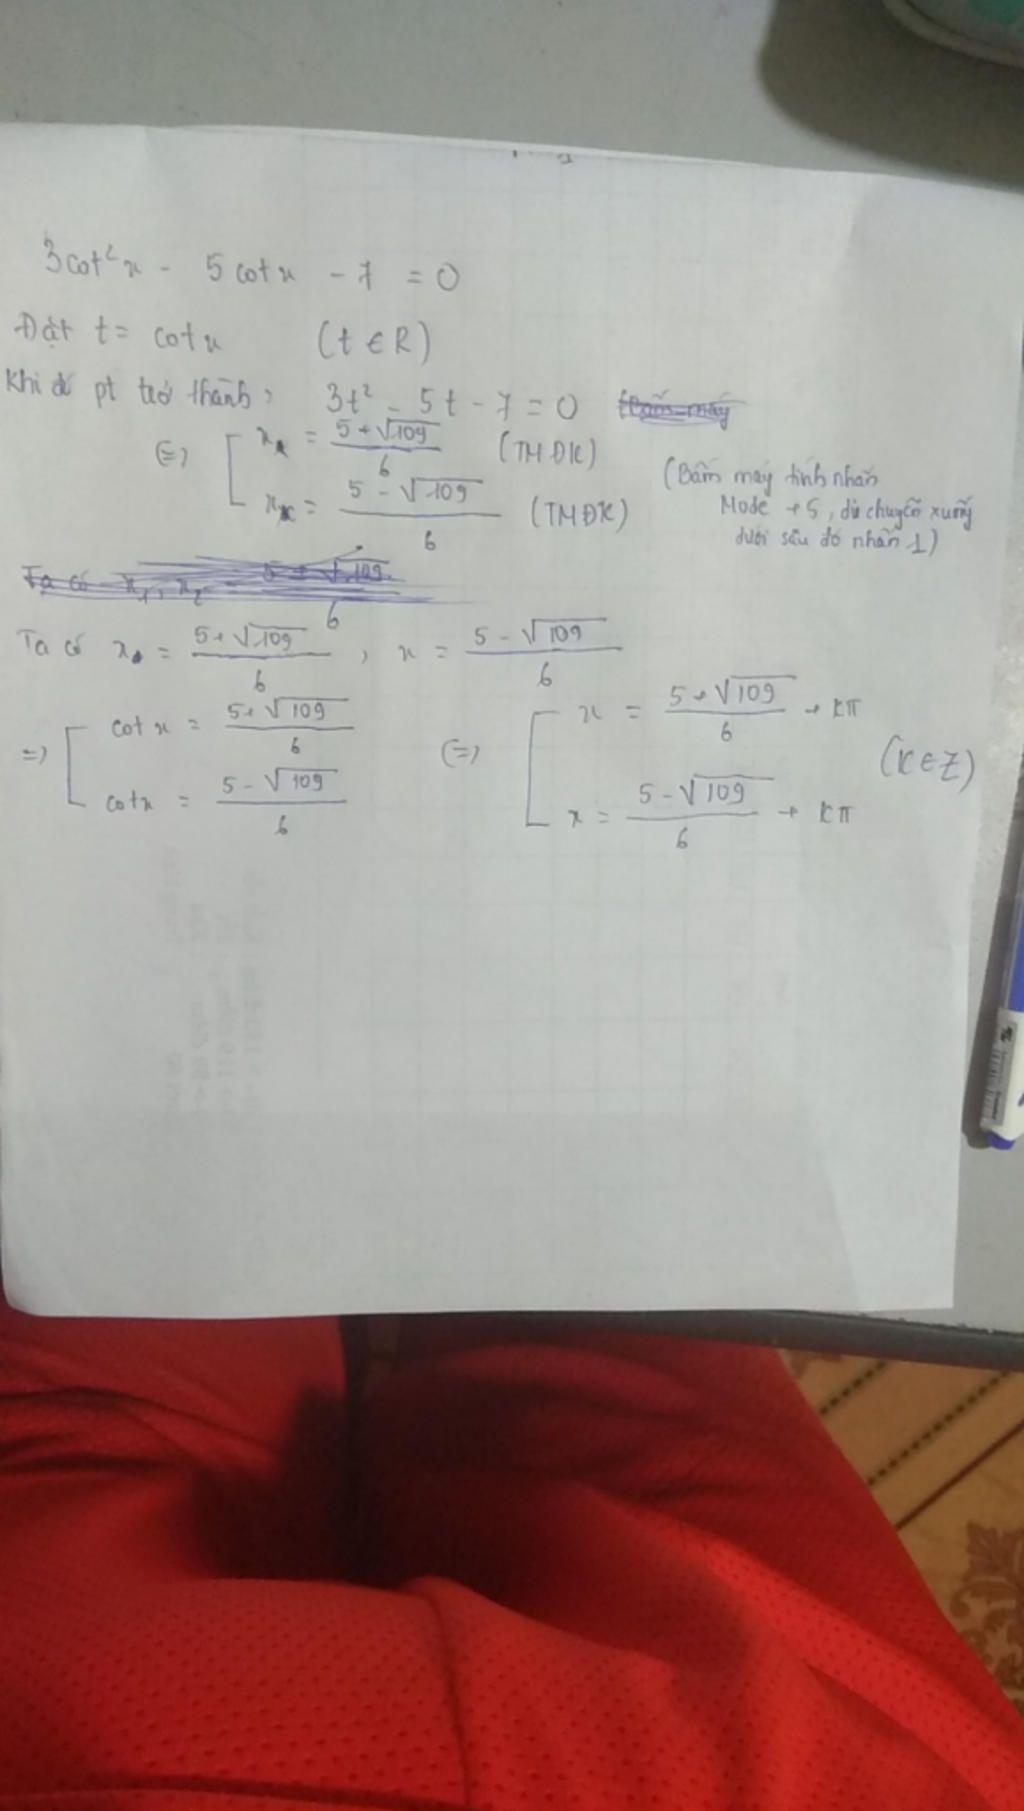 3cot²x - 5cotx - 7 = 0
Đặt t = cotx (t ∈ R)
Khi đó pt trở thành: 3t² - 5t - 7 = 0
⇔ [ x = (5+√109)/6 (TMĐK)
x = (5-√109)/6 (TMĐK)
(Bấm máy tính nhấn
Mode → 5, di chuyển xuống
dưới sau đó nhấn 1)
Ta có x = (5+√109)/6, x = (5-√109)/6
⇒ [ cotx = (5+√109)/6
cotx = (5-√109)/6
⇔ [ x = (5+√109)/6 + kπ
x = (5-√109)/6 + kπ
(k ∈ Z)